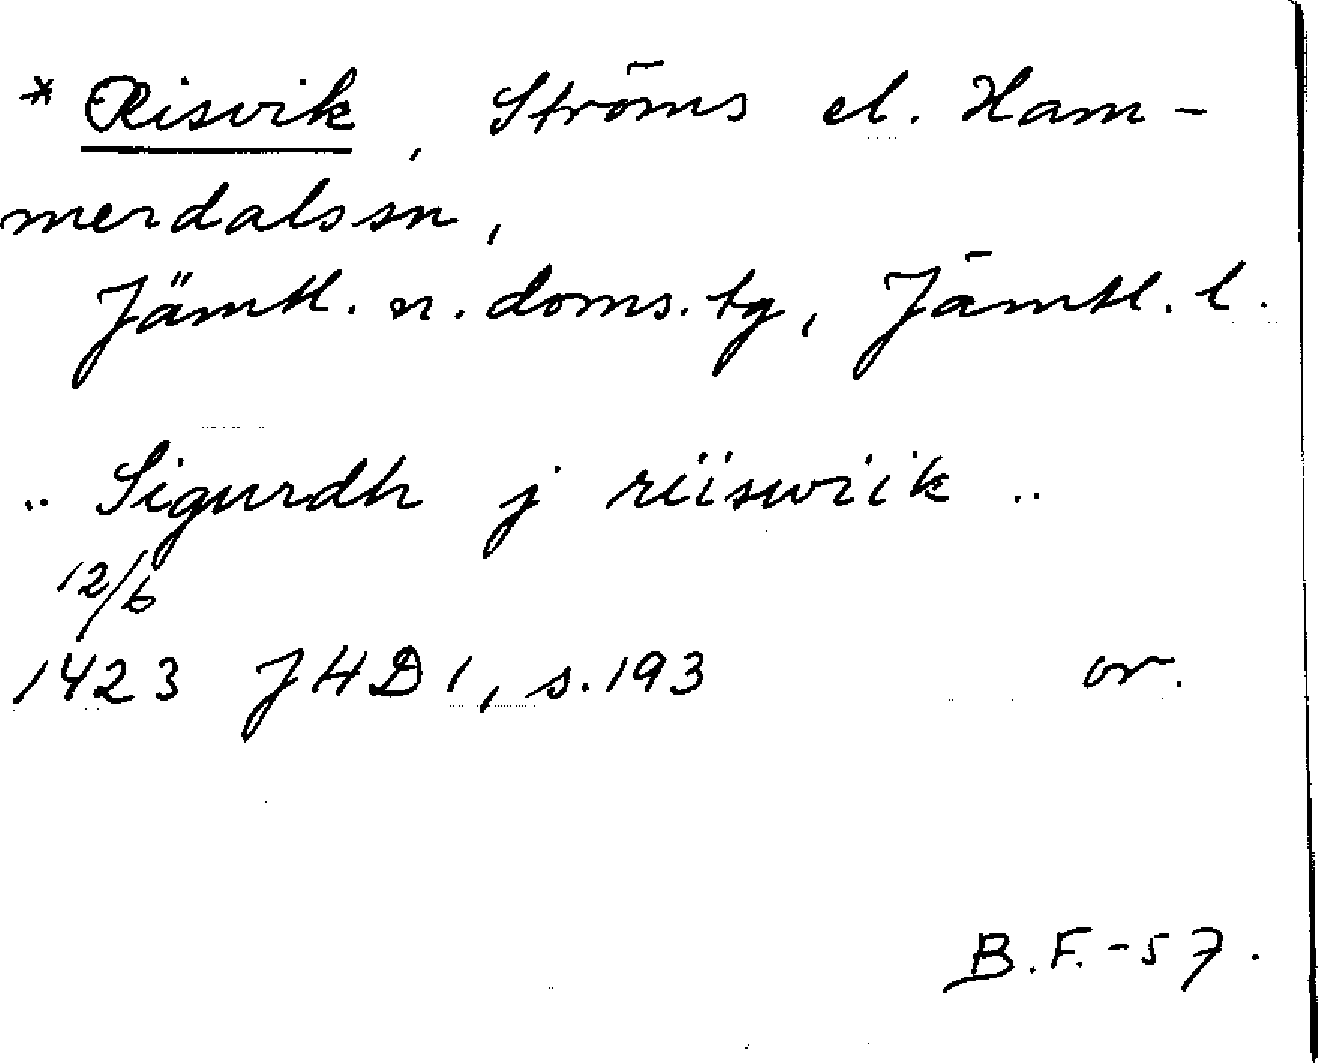 * Risvik, Ströms el. Ham-
merdals sn,
Jämtl. n. doms. tg, Jämtl. l.
.. Sigurdh j riiswiik ..
12/6
1423 JHD 1, s. 193 or.
B.F. -57.